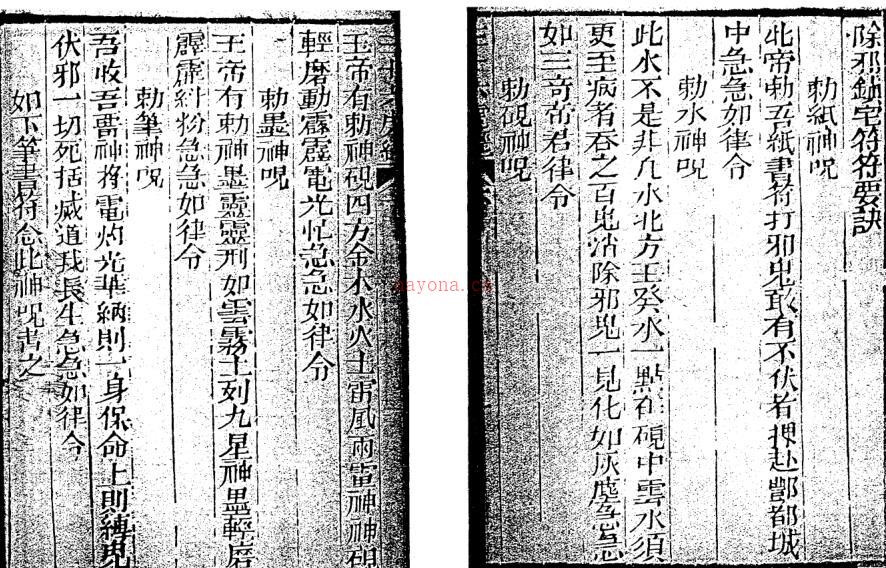 除邪鎮宅符符要訣
勅紙神呪
北帝勅吾紙書符打邪鬼敢有不伏者押赴酆都城
中急急如律令
勅水神呪
此水不是非凡水北方壬癸水一點在硯中雲水須
更至病者吞之百鬼消除邪鬼一見化如灰塵急急
如三奇帝君律令
勅硯神呪
玉帝有勅神硯四方金木水火土雷風雨電神神硯
輕磨動霹靂電光忙急急如律令
勅墨神呪
玉帝有勅神墨靈靈刑如雲霧上列九星神墨輕磨
霹靂糾粉急急如律令
勅筆神呪
吾收吾雷神將電灼光華納則一身保命上則縛鬼
伏邪一切死括滅道我長生急急如律令
如下筆書符念此神呪書之
nayona.cn